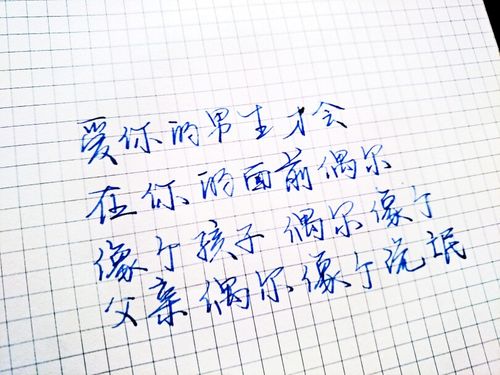 爱你的男生才会
在你的面前偶尔
像个孩子 偶尔像个
父亲 偶尔像个流氓